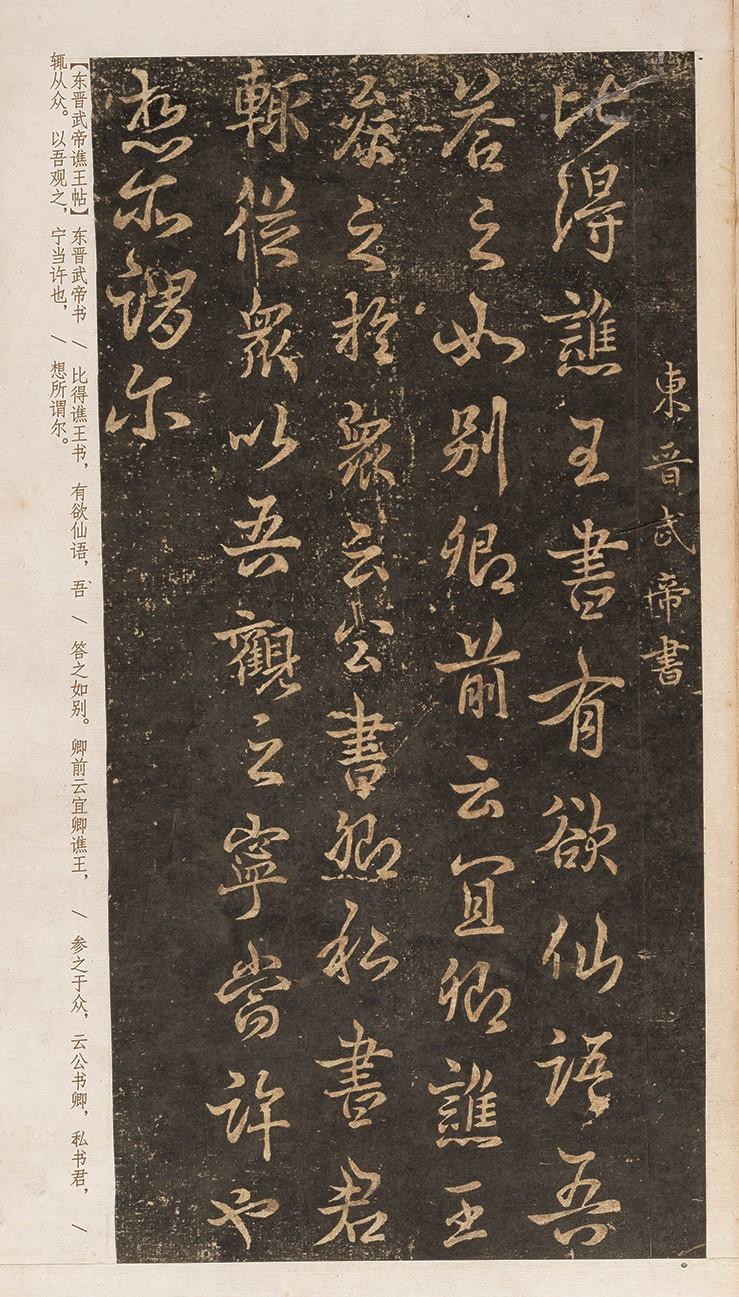 東晋武帝書
比得譙王書有欲仙語吾
答之如别卿前云宜卿譙王
参之於衆云公書卿私書君
輙從衆以吾觀之寧當許也
想所謂尔
【东晋武帝谯王帖】东晋武帝书 \ 比得谯王书，有欲仙语，吾 \ 答之如别。卿前云宜卿谯王， \ 参之于众，云公书卿，私书君， \
辄从众。以吾观之，宁当许也， \ 想所谓尔。